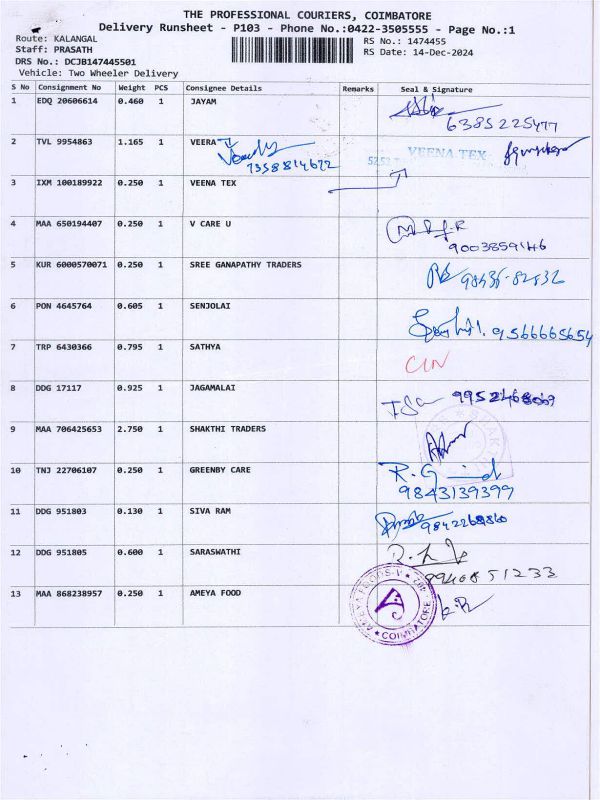 THE PROFESSIONAL COURIERS, COIMBATORE
Delivery Runsheet - P103 - Phone No.:0422-3505555 - Page No.:1
Route: KALANGAL
RS No.: 1474455
Staff: PRASATH
RS Date: 14-Dec-2024
DRS No.: DCJB147445501
Vehicle: Two Wheeler Delivery
S No Consignment No Weight PCS Consignee Details Remarks Seal & Signature
1 EDQ 20606614 0.460 1 JAYAM
6385225477
2 TVL 9954863 1.165 1 VEERA
VEENA TEX
7358814672
3 IXM 100189922 0.250 1 VEENA TEX
4 MAA 650194407 0.250 1 V CARE U
9003859146
5 KUR 6000570071 0.250 1 SREE GANAPATHY TRADERS
6 PON 4645764 0.605 1 SENJOLAI
9566665654
7 TRP 6430366 0.795 1 SATHYA
8 DDG 17117 0.925 1 JAGAMALAI
9 MAA 706425653 2.750 1 SHAKTHI TRADERS
10 TNJ 22706107 0.250 1 GREENBY CARE
9843139399
11 DDG 951803 0.130 1 SIVA RAM
12 DDG 951805 0.600 1 SARASWATHI
9940851233
13 MAA 868238957 0.250 1 AMEYA FOOD
COIMBATORE